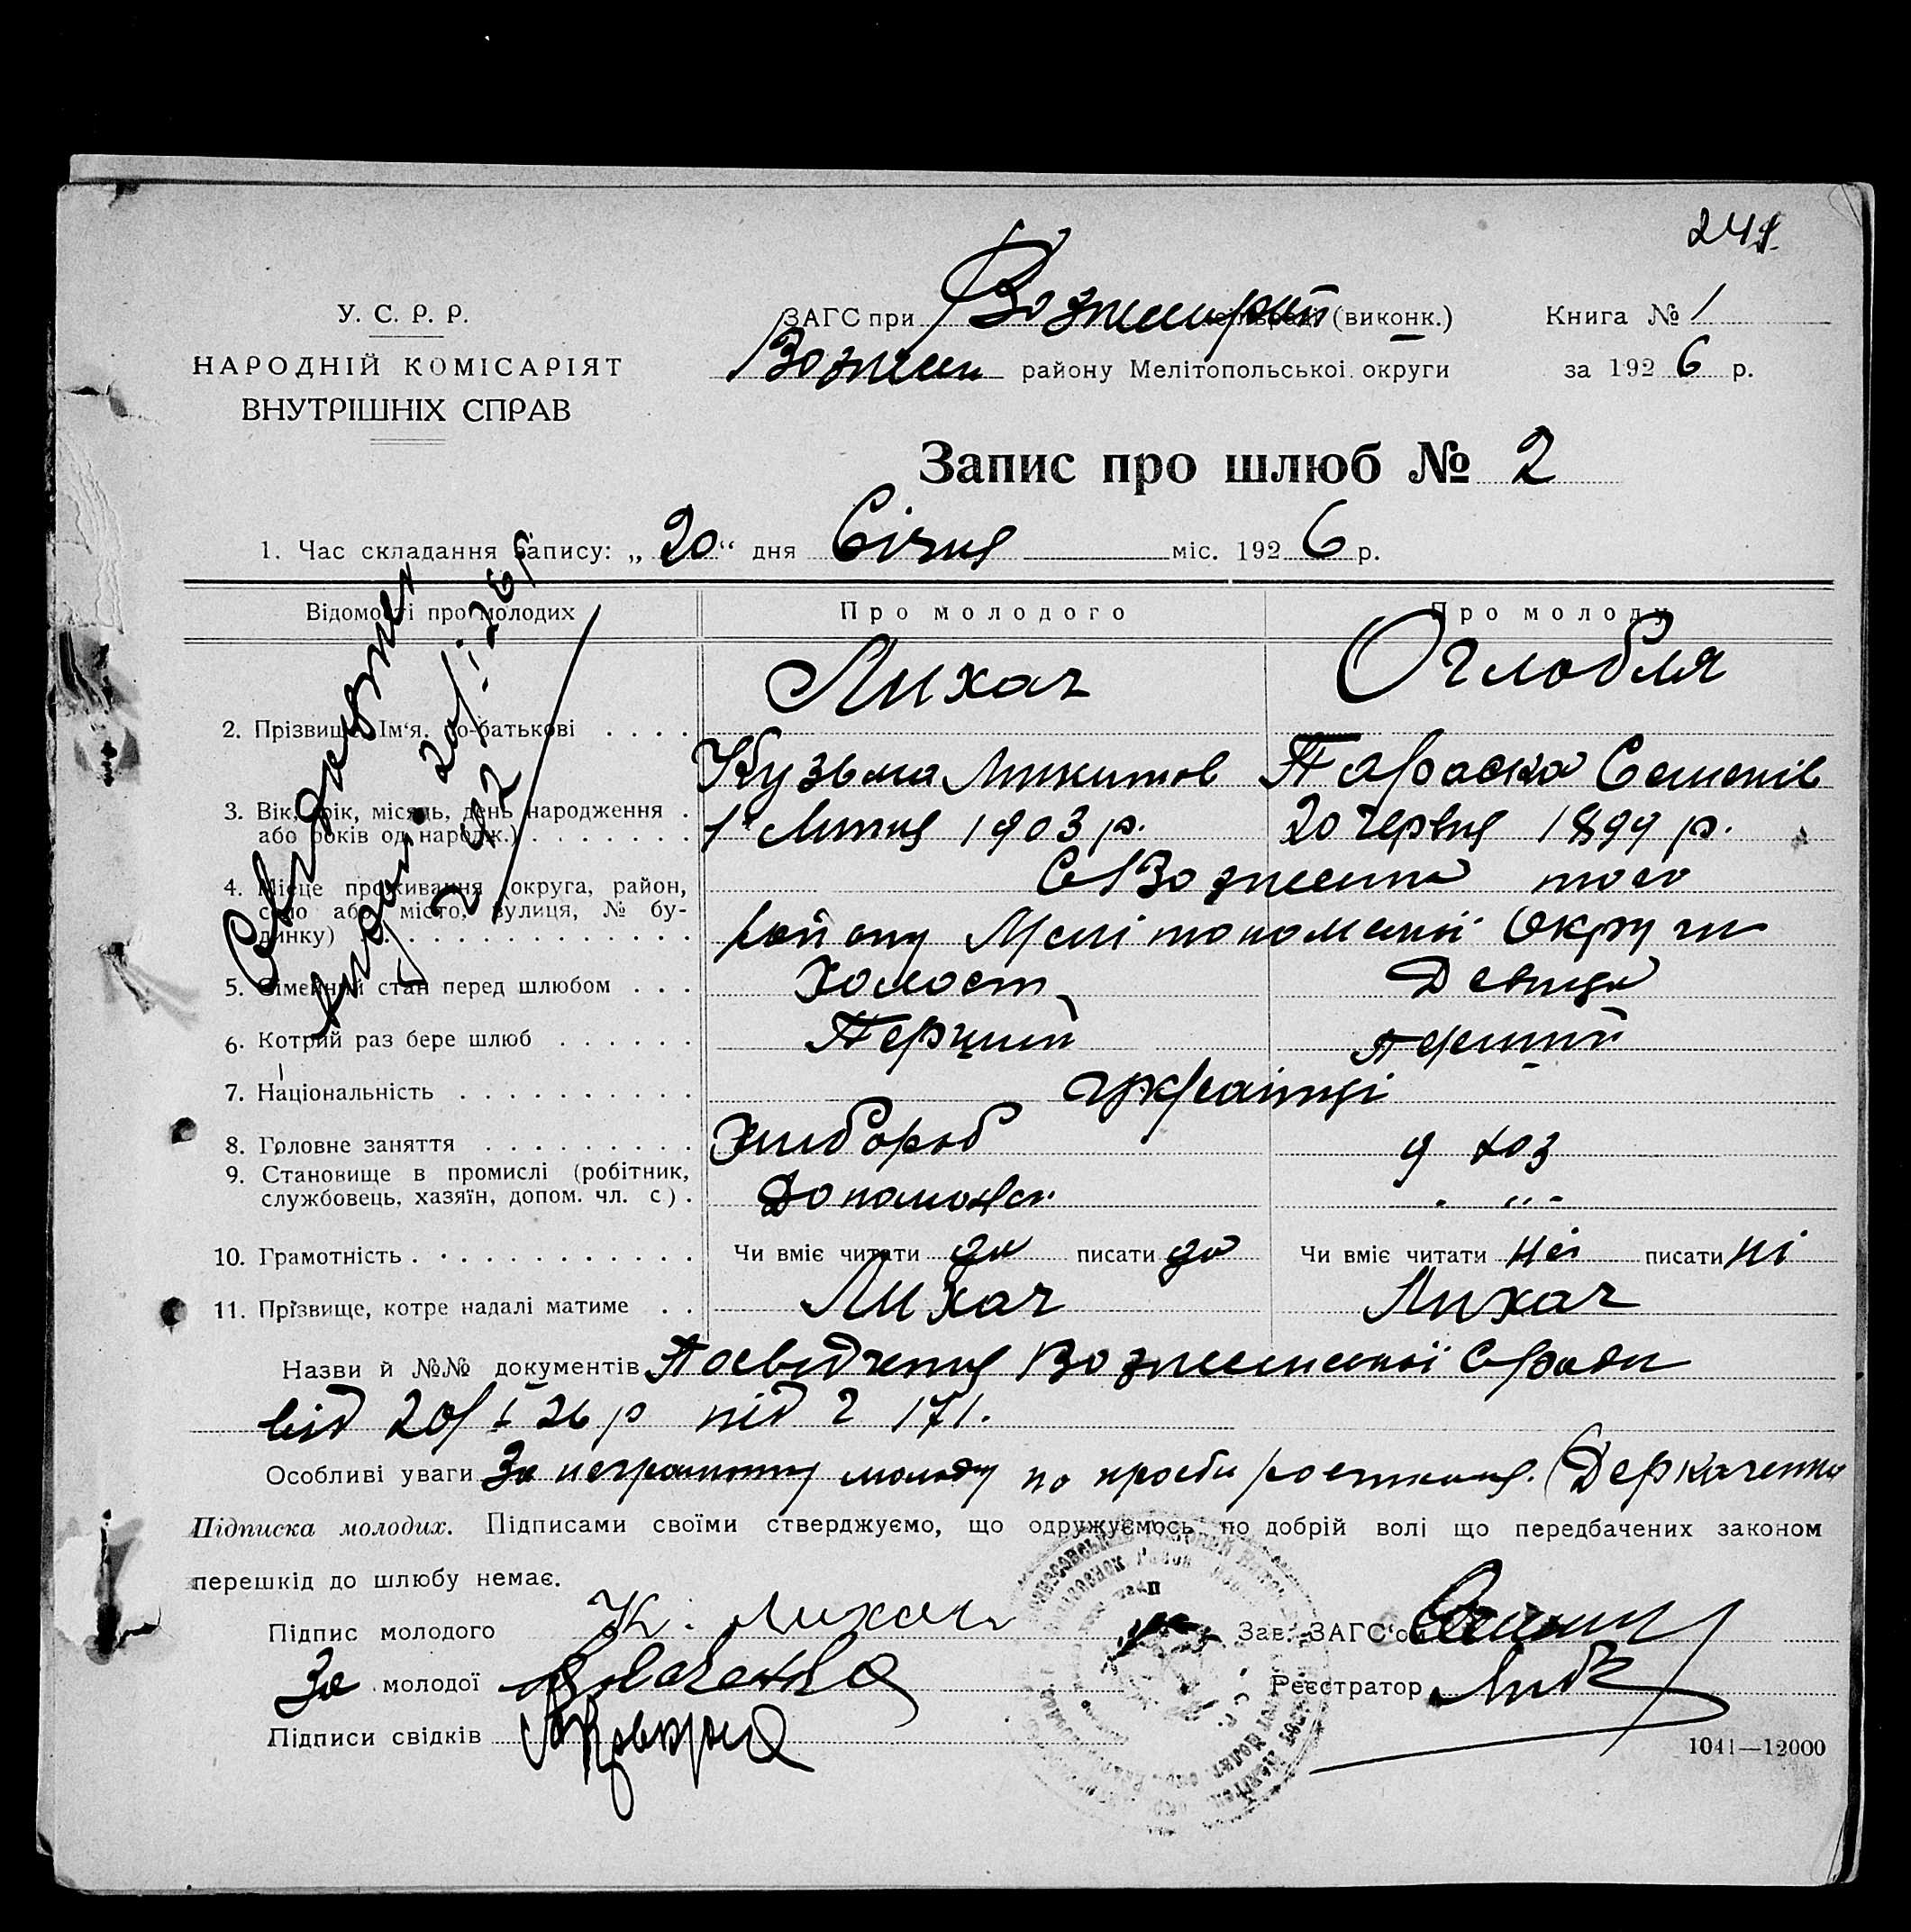 241.
У. С. Р. Р.
НАРОДНІЙ КОМІСАРІЯТ
ВНУТРІШНІХ СПРАВ
ЗАГС при (виконк.)
Вознесен району Мелітопольської округи
Книга № 1
за 1926 р.
Запис про шлюб № 2
1. Час складання запису: „20“ дня Січня міс. 1926 р.
Відомості про молодих
Про молодого
Про молоду
Лихач
Оглобля
2. Прізвище, Ім'я, по-батькові . . . .
Кузьма Микитов
Параска Семенів
3. Вік, (рік, місяць, день народження .
або років од народж.) . . . . . . .
1 1903 р.
20 червня 1899 р.
4. Місце проживання (округа, район,
село або місто, вулиця, № бу-
динку) . . . . . . . . . . . . . .
С Вознесенка того
району Мелітопольської Округи
5. Сімейний стан перед шлюбом . . .
Холост
Девиця
6. Котрий раз бере шлюб . . . . . .
Перший
перший
7. Національність . . . . . . . . . .
українці
8. Головне заняття . . . . . . . . .
Хлибороб
д хоз
9. Становище в промислі (робітник,
службовець, хазяїн, допом. чл. с) .
Допомож
„ -
10. Грамотність . . . . . . . . . . . .
Чи вміє читати да писати да
Чи вміє читати ні писати ні
11. Прізвище, котре надалі матиме . .
Лихач
Лихач
Назви й №№ документів Посвідчення Вознесенської Сради
від 20/I 26 р під 171.
Особливі уваги За неграмотну молоду по просьби (Деркаченко
Підписка молодих. Підписами своїми стверджуємо, що одружуємось по добрій волі що передбачених законом
перешкід до шлюбу немає.
Підпис молодого К. Лихач
За молодої
Підписи свідків
Зав. ЗАГС'ом
Реєстратор
1041—12000